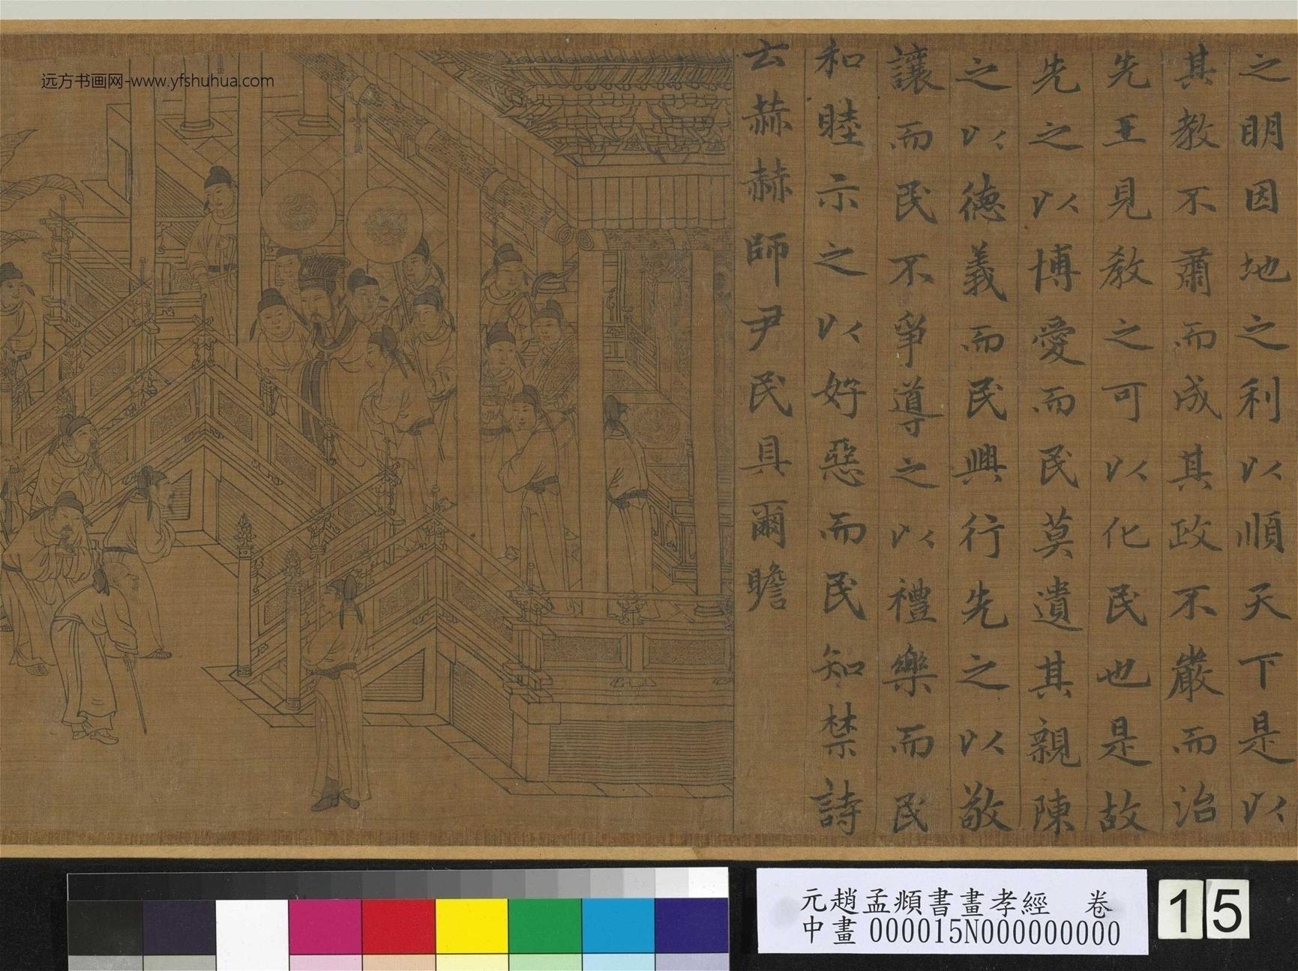 之明因地之利以順天下是以
其教不肅而成其政不嚴而治
先王見教之可以化民也是故
先之以博愛而民莫遺其親陳
之以德義而民興行先之以敬
讓而民不爭導之以禮樂而民
和睦示之以好惡而民知禁詩
云赫赫師尹民具爾瞻
远方书画网-www.yfshuhua.com
元趙孟頫書畫孝經 卷
中畫 000015N000000000
15